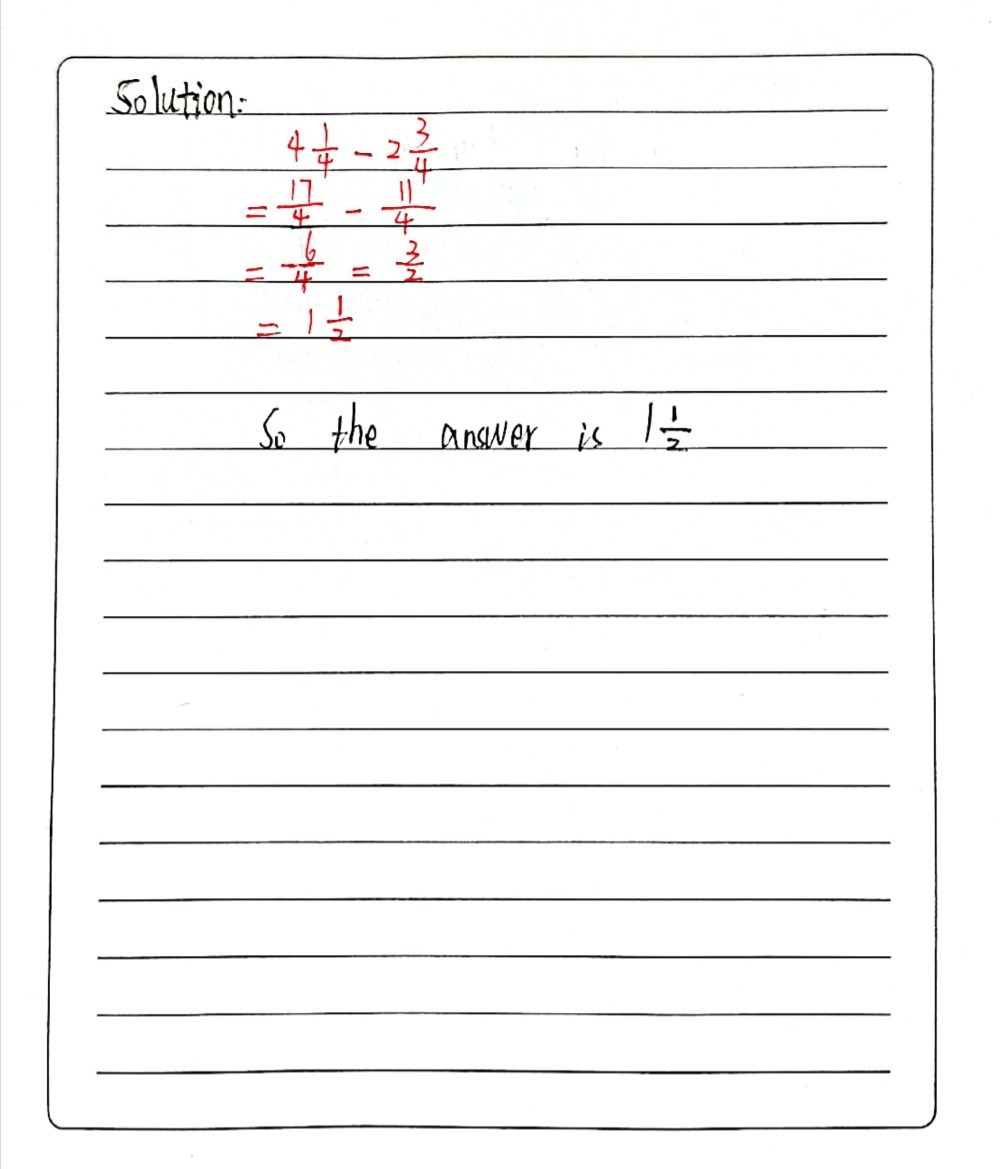 Solution:
4 1/4 - 2 3/4
= 17/4 - 11/4
= 6/4 = 3/2
= 1 1/2
So the answer is 1 1/2